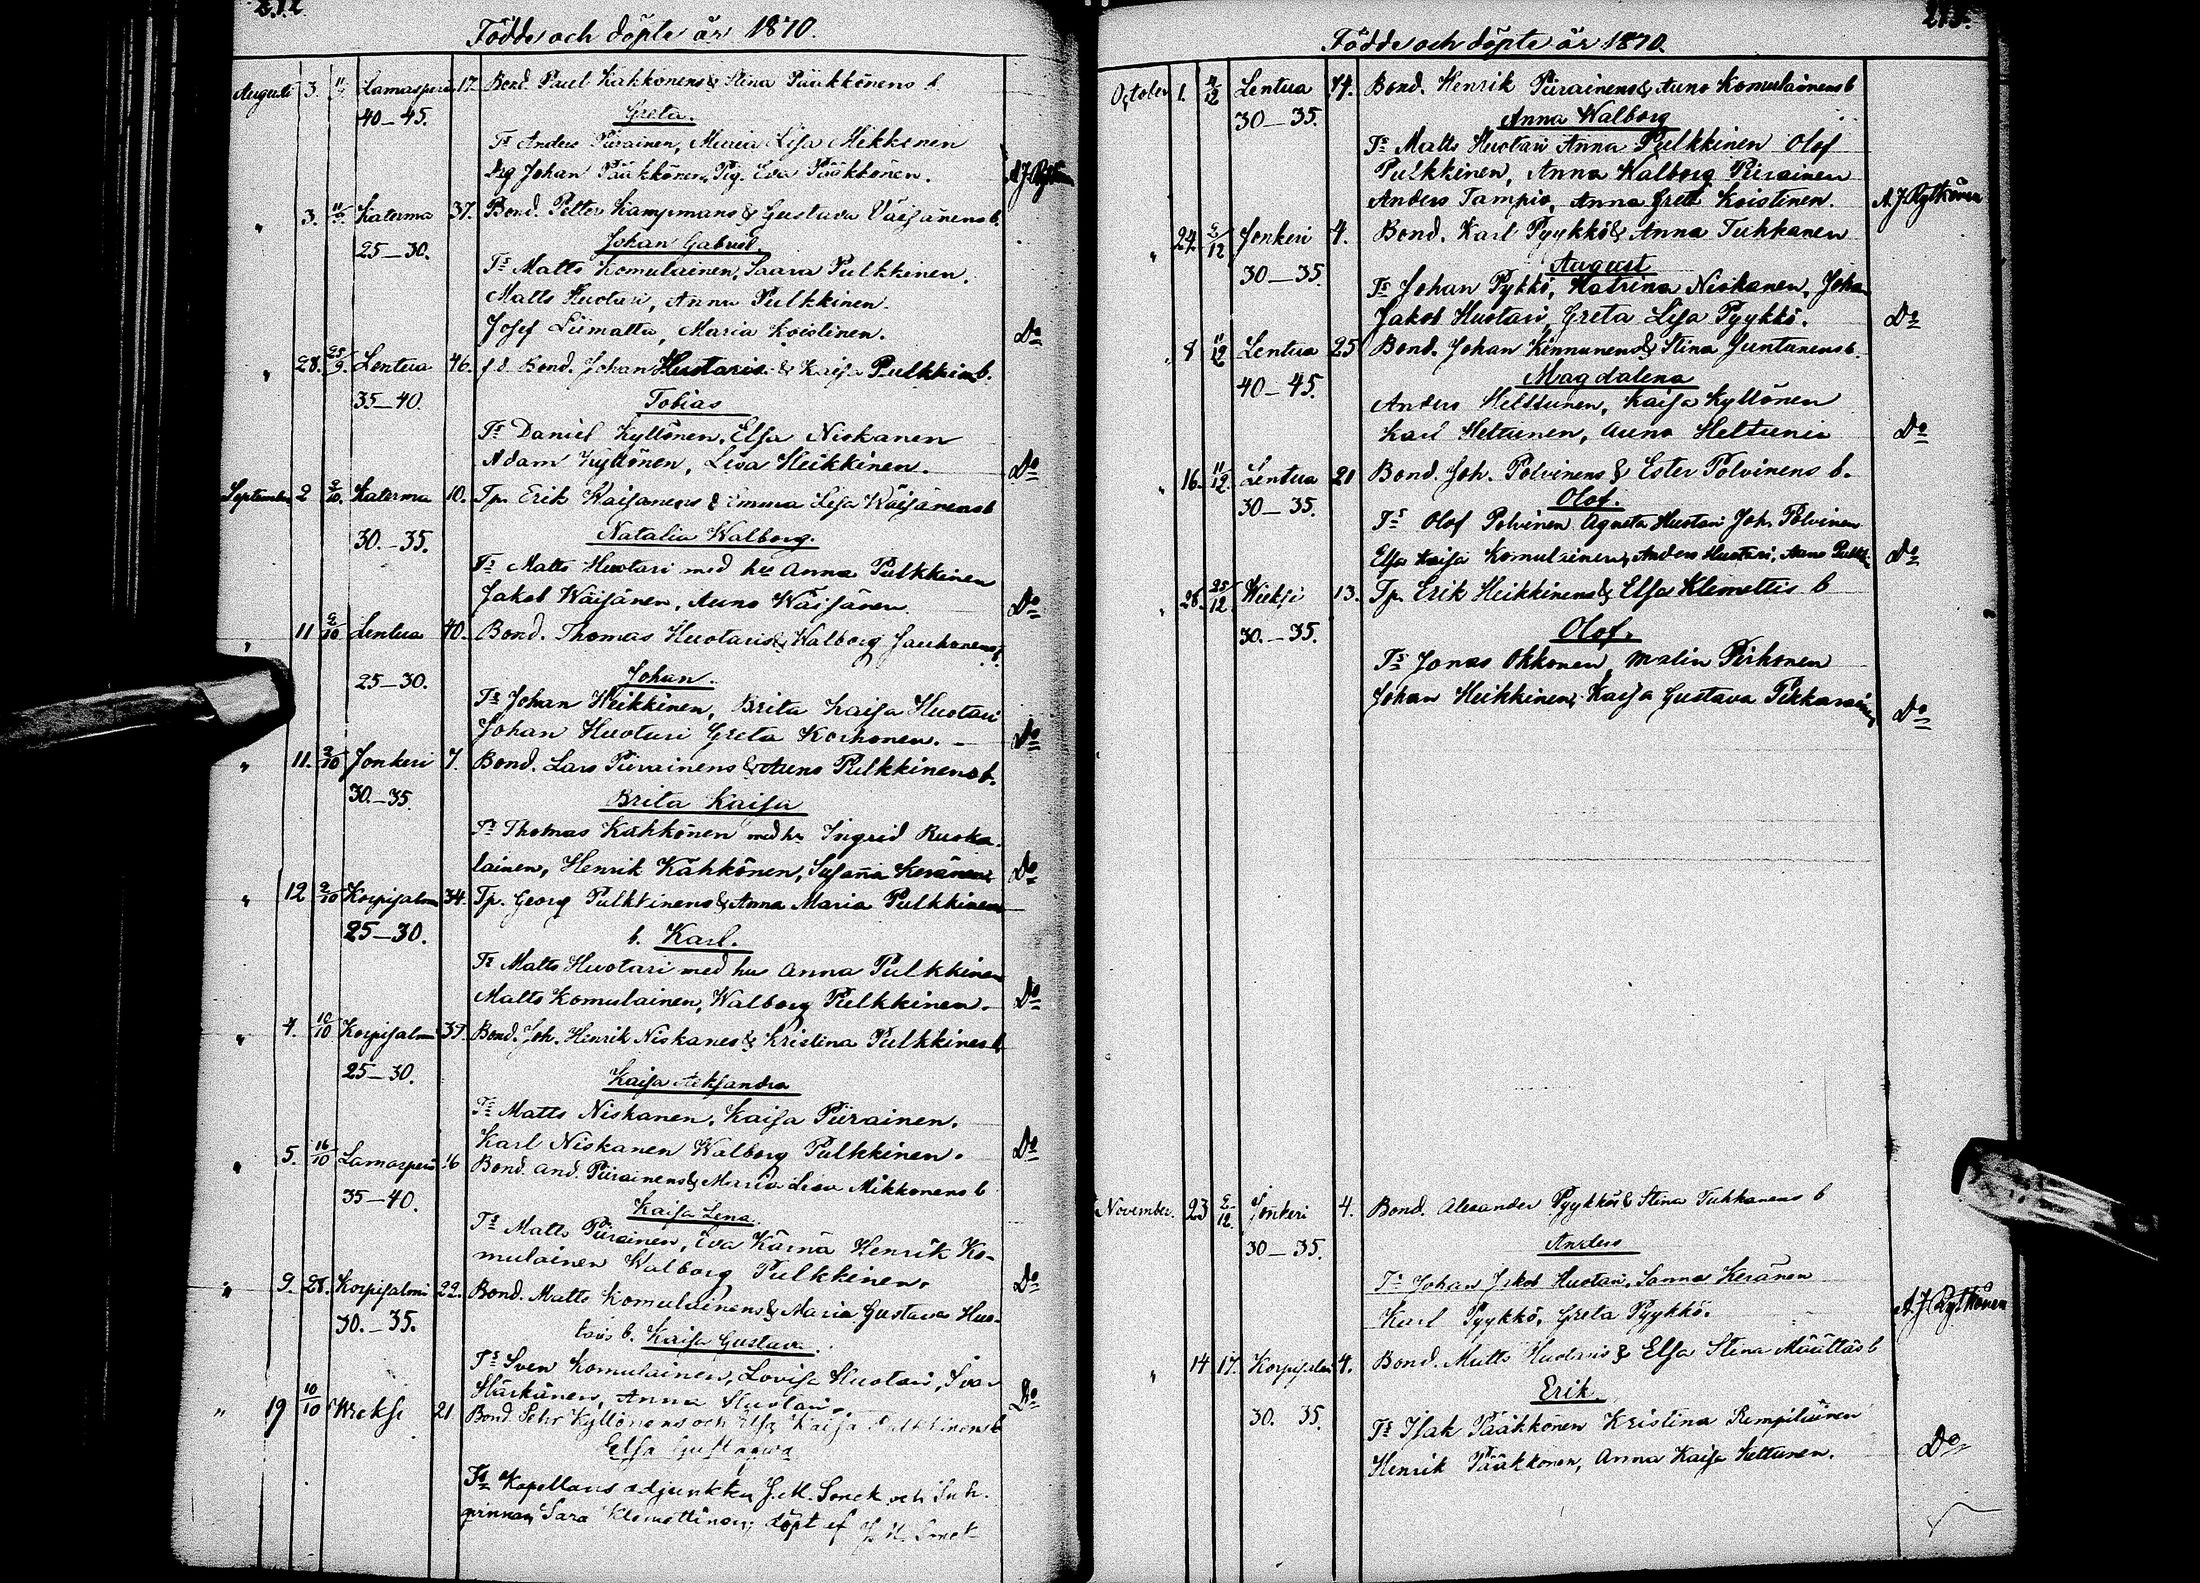 272
Födde och döpte år 1870.
Augusti 3. Lamasperä 17. Bond. Paul Kähkönens & Stina Pääkkönens b.
40–45. Greta.
Ts Anders Piirainen, Maria Lisa Mikkonen
Dräg Johan Pääkkönen, Pig. Eva Pääkkönen. A J Rytkönen
" 3. Katerma 37. Bond. Petter Kampmans & Gustava Väisänens b.
25–30. Johan Gabriel.
Ts Matts Komulainen, Saara Pulkkinen.
Matts Huotari, Anna Pulkkinen.
Josef Liimatta, Maria Koistinen. Do
" 28. 25/9. Lentua 46. f.d. Bond. Johan Huotaris & Kaisa Pulkkin b.
35–40. Tobias
Ts Daniel Kyllönen, Elsa Niskanen
Adam Kyllönen, Lisa Heikkinen. Do
September 2 2/10. Katerma 10. Tp. Erik Waisanens & Emma Lisa Wäisänens b
30–35. Natalia Walborg.
Ts Matts Huotari med hu Anna Pulkkinen
Jakob Wäisänen, Auno Wäisänen. Do
" 11 2/10 Lentua 40. Bond. Thomas Huotaris & Walborg Jauhonens b.
25–30. Johan.
Ts Johan Heikkinen, Brita Kaisa Huotari
Johan Huotari Greta Korhonen. – Do
" 11. 2/10 Jonkeri 7. Bond. Lars Piirainens & Auno Pulkkinens b.
30–35. Brita Kaisa
Ts Thomas Kähkönen med hu Ingrid Ruoka-
lainen, Henrik Kähkönen, Susanna Keränen Do
" 12 2/10 Korpisalmi 34. Tp. Georg Pulkkinens & Anna Maria Pulkkinens
25–30. b. Karl.
Ts Matts Huotari med hu Anna Pulkkinen
Matts Komulainen, Walborg Pulkkinen. Do
" 4. 10/10 Korpisalmi 39. Bond. Joh. Henrik Niskanes & Kristina Pulkkines b.
25–30. Kaisa Aleksandra
Ts Matts Niskanen, Kaisa Piirainen.
Karl Niskanen Walborg Pulkkinen. Do
" 5. 16/10 Lamasperä 16 Bond. And. Piirainens & Maria Lisa Mikkonens b
35–40. Kaisa Lena.
Ts Matts Piirainen, Eva Kärnä Henrik Ko-
mulainen Walborg Pulkkinen. Do
" 9. 28. Korpisalmi 22. Bond. Matts Komulainens & Maria Gustava Huo-
30.–35. taris b. Kaisa Gustava.
Ts Sven Komulainen, Lovisa Huotari, Ivar
Härkönen, Anna Huotari. Do
" 19 10/10 Wieksi 21 Bond. Kyllönens och Elsa Kaisa Pulkkinens b
Elsa Gustaava
Ts Kapellans adjunkten J. M. Sonck och
Sara Klemettinen, döpt af J. M. Sonck
273.
Födde och döpte år 1870.
October 1. 4/12 Lentua 14. Bond. Henrik Piirainens & Auno Komulainens b
30–35. Anna Walborg
Ts Matts Huotari Anna Pulkkinen Olof
Pulkkinen, Anna Walborg Piirainen
Anders Tampio, Anna Greta Koistinen. A J Rytkönen
" 24. 2/12 Jonkeri 4. Bond. Karl Pyykkö & Anna Tuhkanen
30–35. August
Ts Johan Pykkö, Katrina Niskanen, Johan
Jakob Huotari, Greta Lisa Pyykkö. Do
" 8 11/12 Lentua 25 Bond. Johan Kinnunens & Stina Juntunens b.
40–45. Magdalena
Anders Helttunen, Kaisa Kyllönen
Karl Heltunen, Auno Heltunen Do
" 16. 11/12. Lentua 21 Bond. Joh. Polvinens & Ester Polvinens b.
30–35. Olof.
Ts Olof Polvinen Agneta Huotari Joh. Polvinen
Elsa Kaisa Komulainen, Anders Huotari, Auno Pulkk. Do
" 28. 25/12. Wieksi 13. Tp. Erik Heikkinens & Elsa Klemettis b
30.–35. Olof.
Ts Jonas Okkonen, Malin Pirhonen
Johan Heikkinen, Kaisa Gustava Pikkarainen Do
November. 23 2/12. Jonkeri 4. Bond. Alexander Pyykkös & Stina Tuhkanens b
30–35. Anders
Ts Johan Jakob Huotari, Sanna Keränen
Karl Pyykkö, Greta Pyykkö. A J Rytkönen
" 14 17. Korpisalmi 4. Bond. Matts Huotaris & Elsa Stina Määttäs b
30. 35. Erik.
Ts Isak Pääkkönen Kristina Rimpiläinen
Henrik Pääkkönen, Anna Kaisa Heltunen. Do